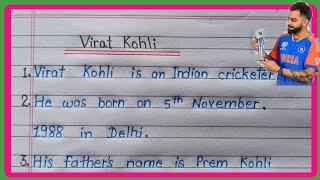 Virat Kohli
1. Virat Kohli is an Indian cricketer
2. He was born on 5th November,
1988 in Delhi.
3. His father's name is Prem Kohli
INDIA